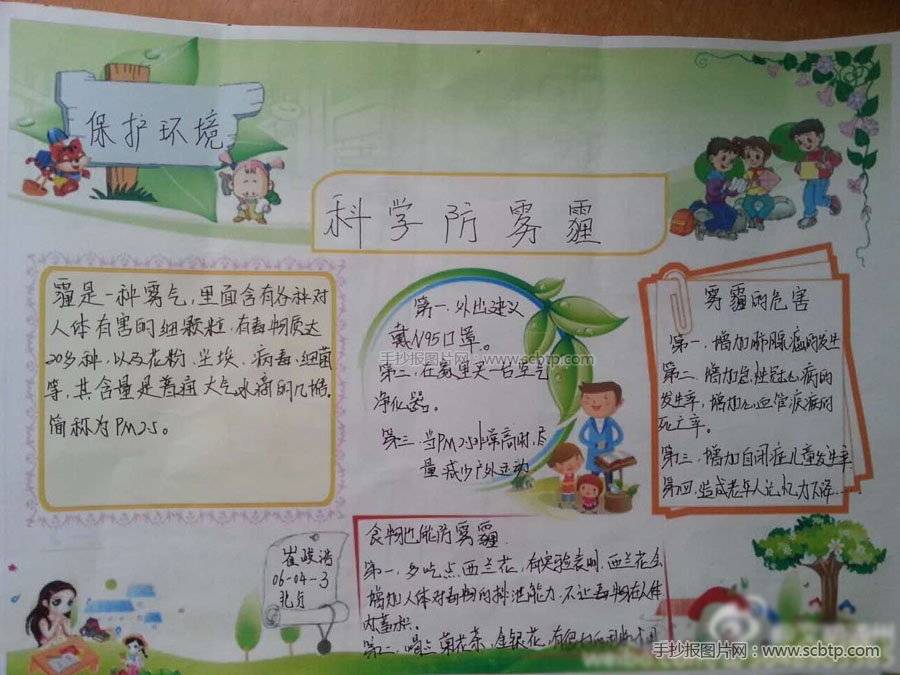 保护环境
科学防雾霾
霾是一种雾气，里面含有各种对
人体有害的细颗粒，有毒物质达
20多种，以及花粉、尘埃、病毒、细菌
等，其含量是普通大气水滴的几倍。
简称为PM2.5。
第一、外出建议
戴N95口罩。
第二、在家里买一台空气
净化器。
第三、当PM2.5非常高时，尽
量减少户外运动。
雾霾的危害
第一、增加肺腺癌的发生
第二、增加急性冠心病的
发生率，增加心血管疾病的
死亡率。
第三、增加自闭症儿童发生率
第四、造成老年人记忆力下降……
手抄报图片网：www.scbtp.com
崔
06-04-3
食物也能防雾霾
第一、多吃点西兰花，有实验表明，西兰花会
增加人体对毒物的排泄能力，不让毒物在人体
内蓄积。
第二、喝点菊花茶、金银花，有
手抄报图片网：www.scbtp.com